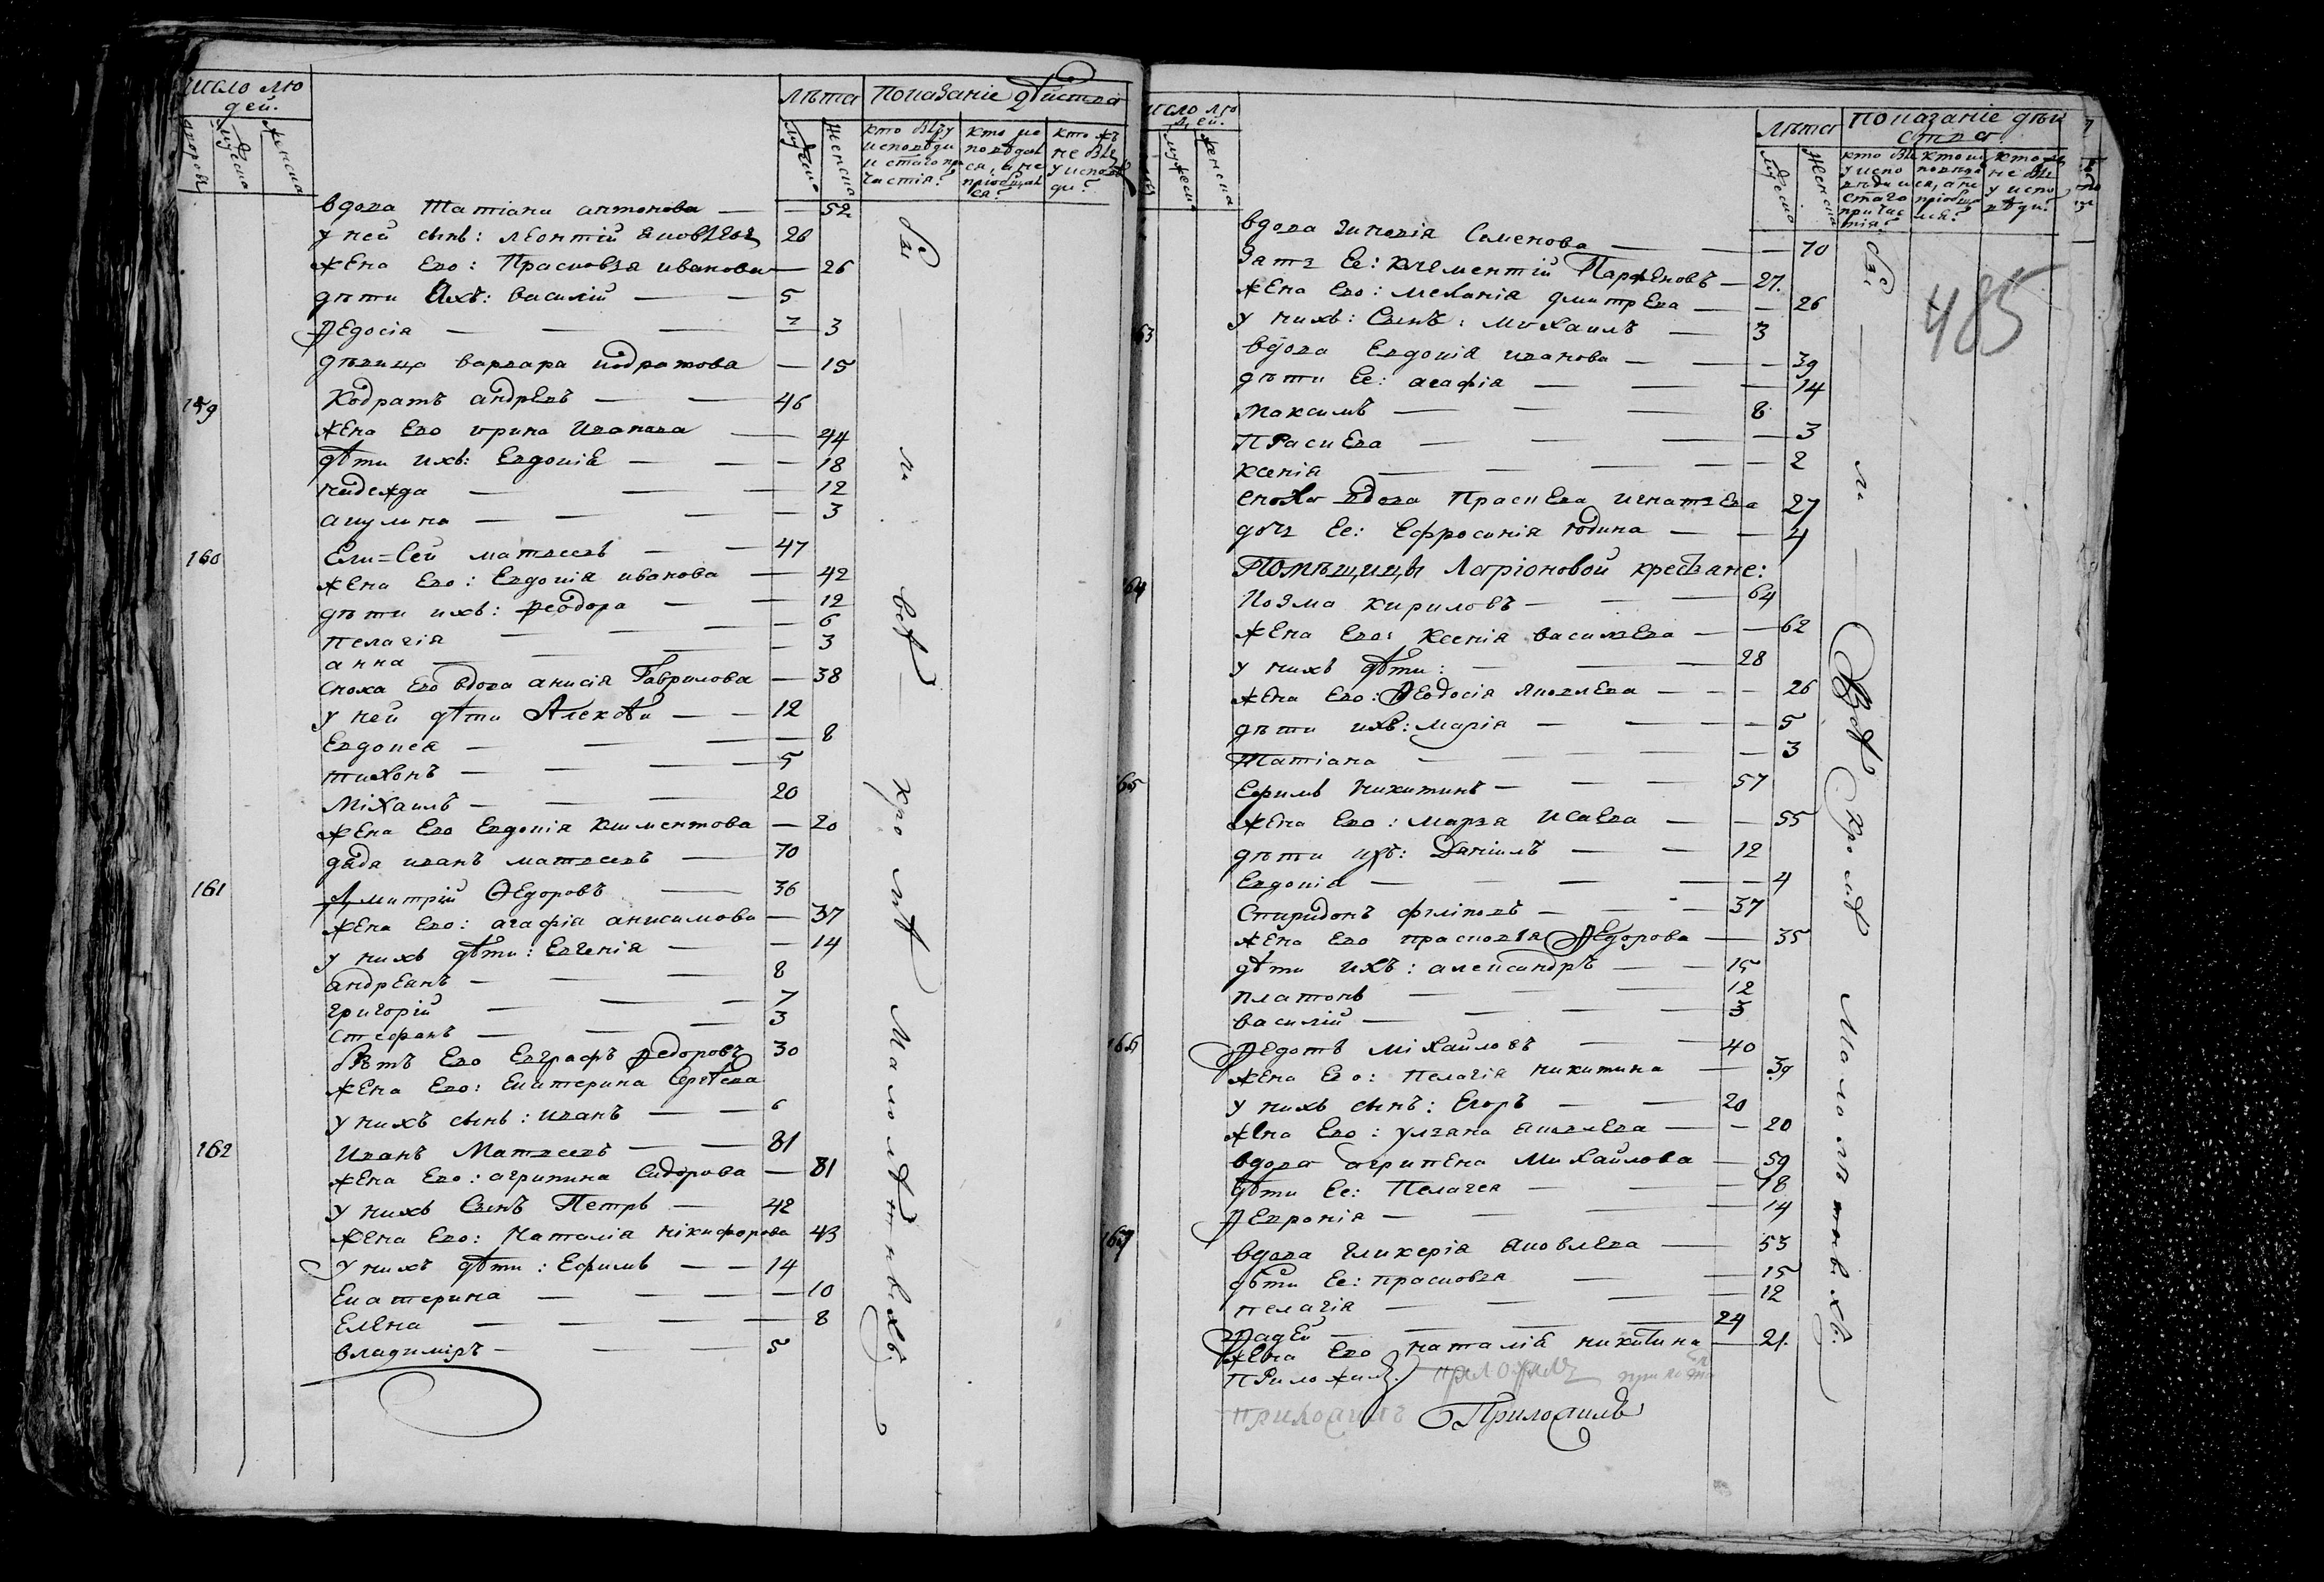 число лю
дей.
лѣта показаніе дѣйства
дворовъ мужеска женска мужеска женска
кто былъ у исповѣди и стаго причастія?
кто исповѣдался, а не пріобщался?
кто жъ не былъ у исповѣди?
вдова Татіана антонова — — 52
у ней сынъ: леонтій яковлевъ 26
жена Его: Прасковья иванова — 26
дѣти Ихъ: василій — — 5
Ѳедосія — — — 3
дѣвица варвара кодратова — 15
159 Кодратъ андреевъ — — 46
жена Его ирина Иванова — 44
дѣти ихъ: Евдокія — — 18
надежда — — — 12
акулина — — — 3
160 Ели=сей матвеевъ — — 47
жена Его: Евдокія иванова — 42
дѣти ихъ: ѳеодора — — 12
пелагія — — — 6
анна — — — 3
сноха Его вдова анисія Гаврилова — 38
у ней дѣти Алексѣй — — 12
Евдокея — — — 8
тихонъ — — — 5
Міхаилъ — — — 20
жена Его Евдокія климентова — 20
дядя иванъ матвеевъ — 70
161 Дмитрій Ѳедоровъ — 36
жена Его: агафія анисимова — 37
у нихъ дѣти: Евгенія — — 14
андреянъ — — — 8
григорій — — — 7
стефанъ — — — 3
братъ Его Евграфъ ѳедоровъ 30
жена Его: Екатерина Сергѣева
у нихъ сынъ: иванъ — — 6
162 Иванъ Матвеевъ — — 81
жена Его: агрипина Сидорова — 81
у нихъ Сынъ Петръ — 42
жена Его: Наталія нікифорова 43
у нихъ дѣти: Ефимъ — — 14
Екатерина — — — 10
Елена — — — 8
владиміръ — — — 5
бы — ли — всѣ — кро мѣ малолѣтнихъ.
число лю
дей.
мужеска женска
лѣта показаніе дѣй
ства
мужеска женска
кто былъ у исповѣди и стаго причастія?
кто исповѣдался, а не пріобщался?
кто жъ не былъ у исповѣди?
485
вдова зиновія Семенова — — 70
Зять Ее: климентій Парфеновъ — 27.
жена Его: меланія дмитрева — — 26
у нихъ: Сынъ: михаилъ — 3
63 вдова Евдокія иванова — — 39
дѣти Ее: агафія — — — 14
максимъ — — — 8
Праскева — — — 3
ксенія — — — 2
сноха вдова Праскева игнатьева 27
дочь Ее: Ефросинія родина — — 4
Помѣщицы Ларіоновой крестьяне:
64 Козма кириловъ — — — 64
жена Его: ксенія василева — — 62
у нихъ дѣти: — — — 28
жена Его: Ѳеодосія яковлева — — 26
дѣти ихъ: марія — — — 5
Татіана — — — 3
65 Ефимъ никитинъ — — — 57
жена Его: марѳа исаева — — 55
дѣти ихъ: Даніилъ — — 12
Евдокія — — — 4
Спиридонъ филиповъ — — 37
жена Его прасковья Ѳедорова — 35
дѣти ихъ: александръ — — 15
платонъ — — — 12
василій — — — 3
166 Ѳедотъ міхайловъ — — 40
жена Его: пелагія никитина — 39
у нихъ сынъ: Егоръ — — 20
жена Его: ульяна яковлева — — 20
вдова агрипена михайлова — 59
дѣти Ее: Пелагея — — — 18
Ѳевронія — — — 14
167 вдова гликерія яковлева — 53
дѣти Ее: прасковья — — 15
пелагія — — — 12
Ѳадей — — — 24
жена Его наталія никитина — 21.
бы — ли — всѣ кромѣ малолѣтнихъ.
приложилъ. приложилъ
приложилъ Приложилъ